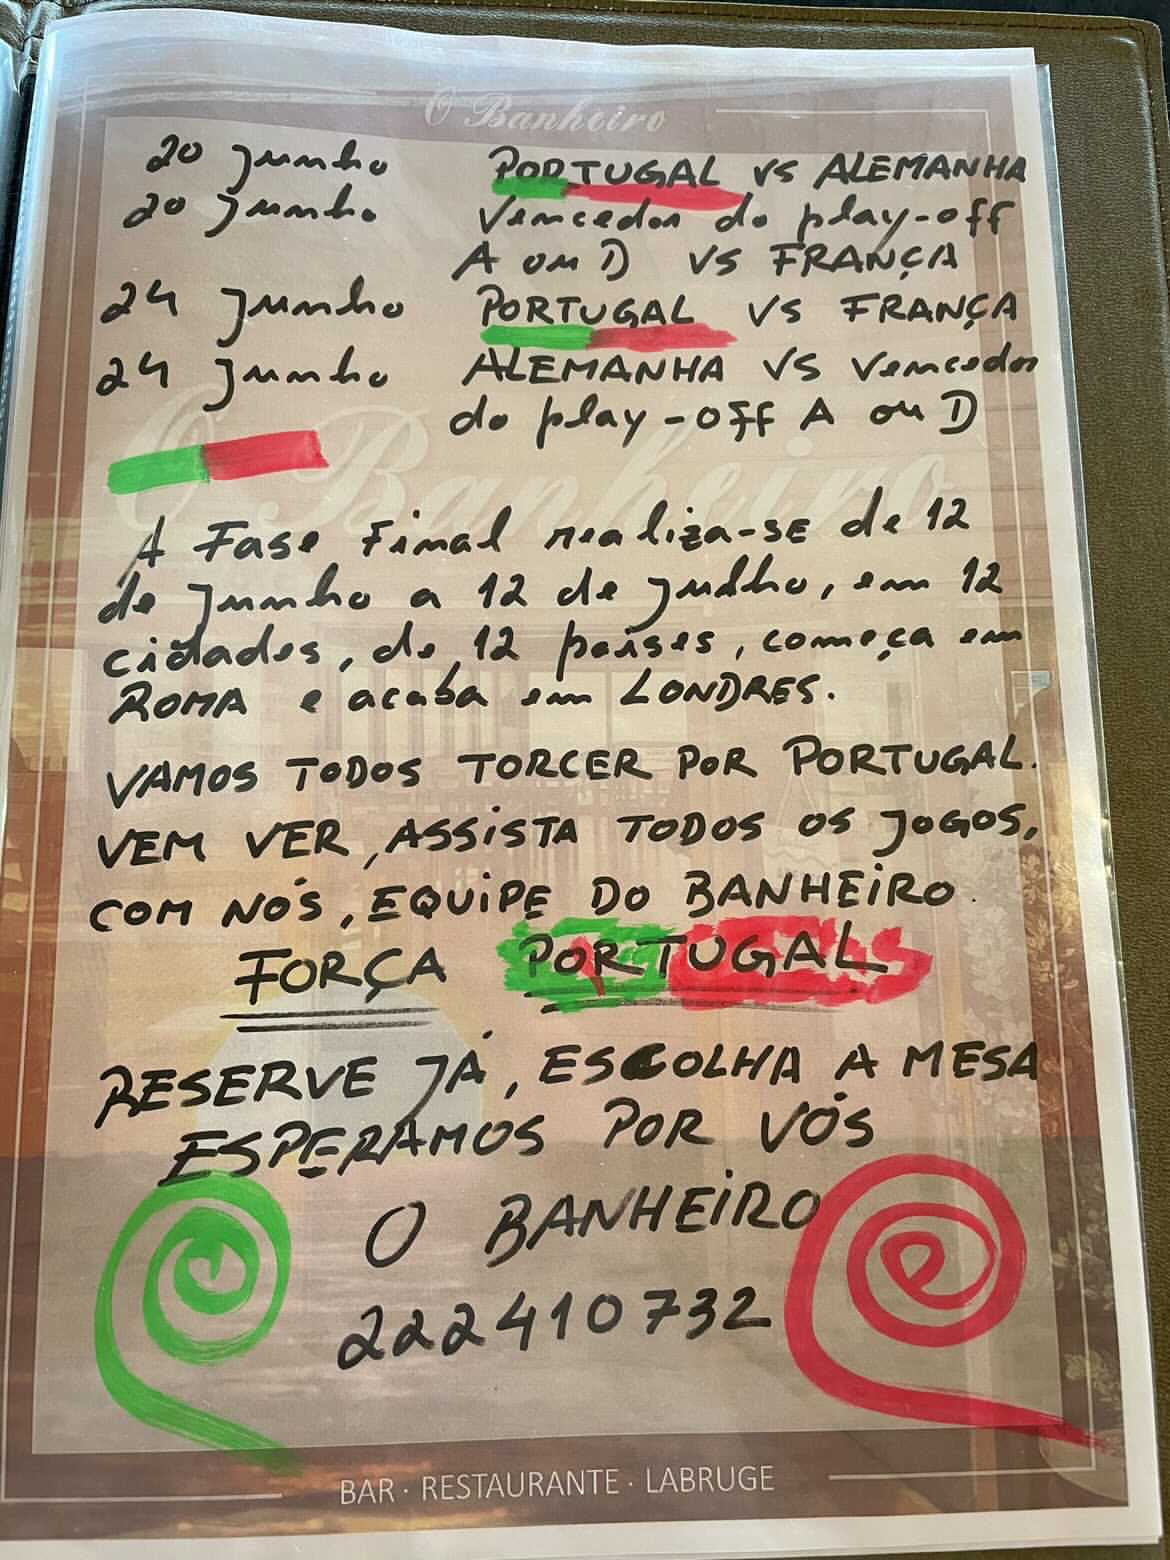 O Banheiro
20 Junho PORTUGAL VS ALEMANHA
20 Junho Vencedor do play-off
A ou D VS FRANÇA
24 Junho PORTUGAL VS FRANÇA
24 Junho ALEMANHA VS Vencedor
do play-off A ou D
O Banheiro
A Fase Final realiza-SE de 12
de Junho a 12 de Julho, em 12
cidades, de 12 países, começa em
ROMA e acaba em LONDRES.
VAMOS TODOS TORCER POR PORTUGAL.
VEM VER, ASSISTA TODOS OS JOGOS,
COM NÓS, EQUIPE DO BANHEIRO.
FORÇA PORTUGAL
RESERVE JÁ, ESCOLHA A MESA
ESPERAMOS POR VÓS
O BANHEIRO
222410732
BAR · RESTAURANTE · LABRUGE